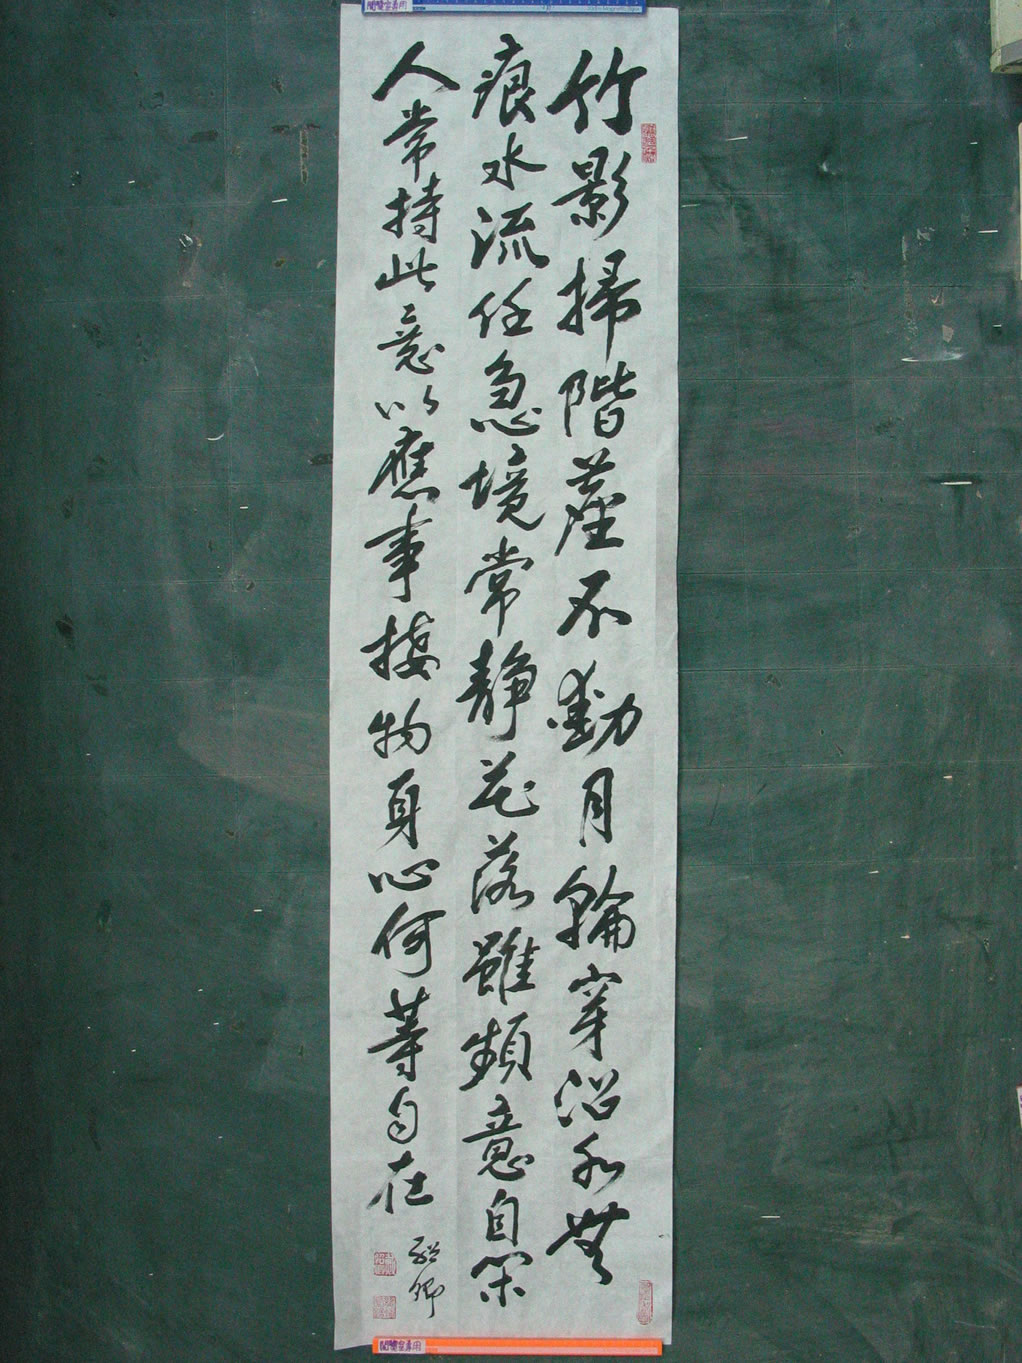 竹影掃階塵不動月輪穿沼水無
痕水流任急境常靜花落雖頻意自閑
人常持此意以應事接物身心何等自在
卿